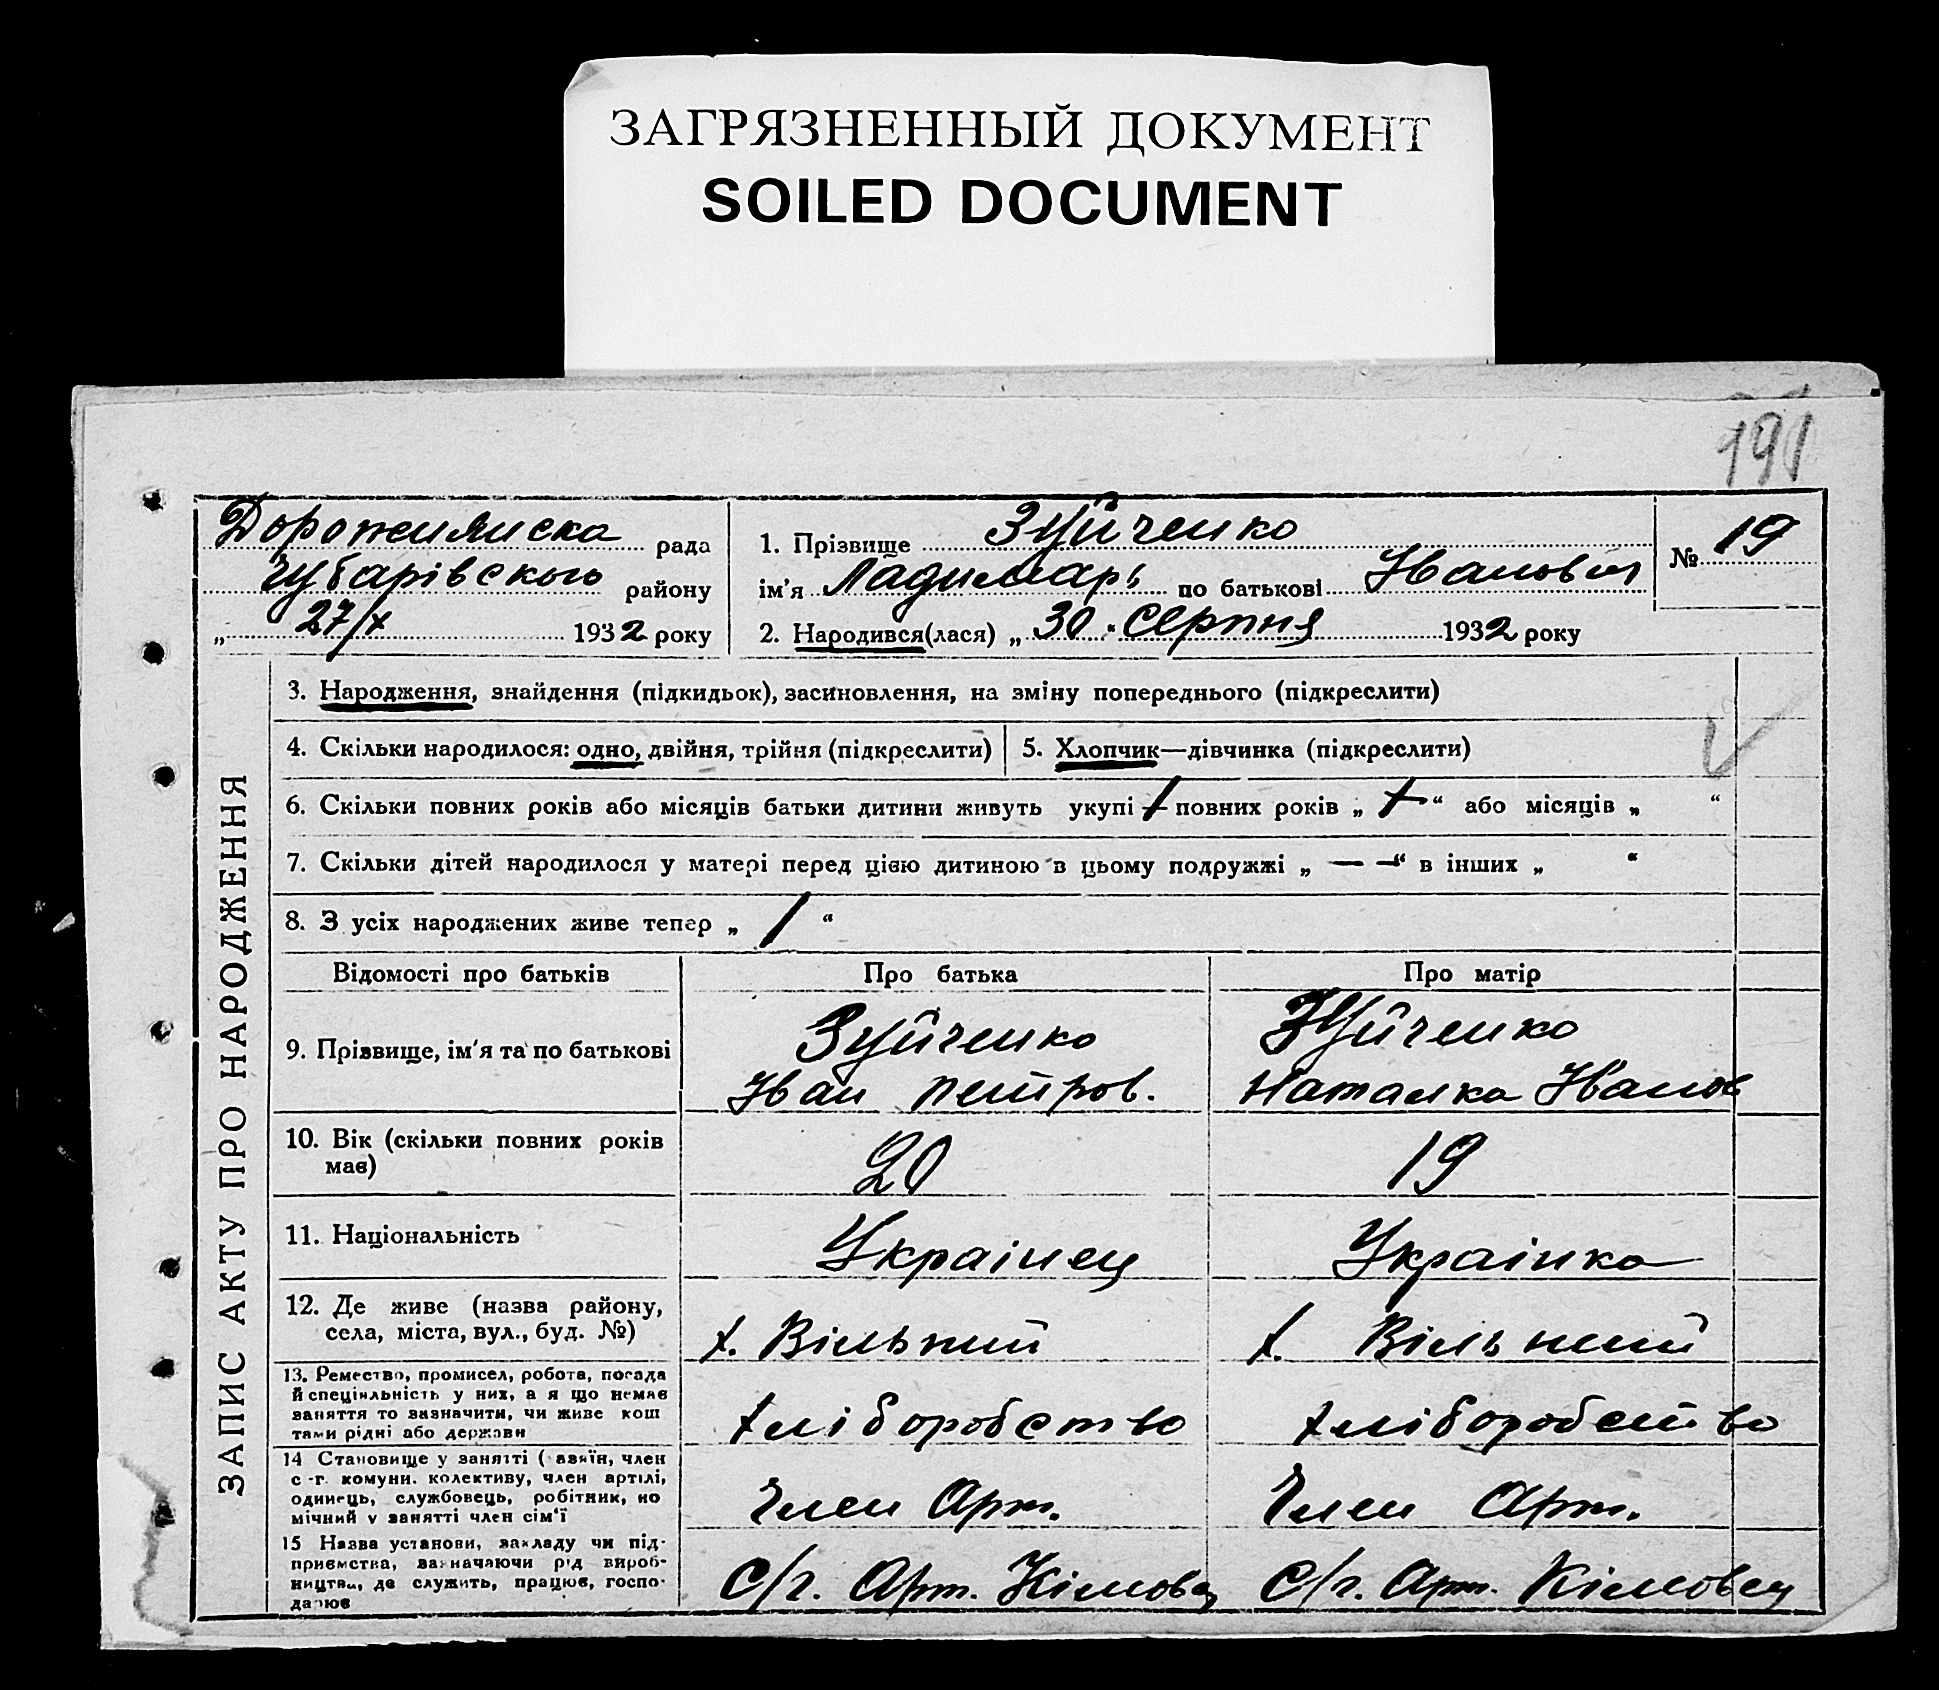 ЗАГРЯЗНЕННЫЙ ДОКУМЕНТ
SOILED DOCUMENT
191
Дорожнянска рада
Чубарівського району
„ 27/X 1932 року
1. Прізвище Зуйченко
ім'я Ладимарь по батькові Іванович
2. Народився(лася) „ 30 " Серпня 1932 року
№ 19
ЗАПИС АКТУ ПРО НАРОДЖЕННЯ
3. Народження, знайдення (підкидьок), засиновлення, на зміну попереднього (підкреслити)
4. Скільки народилося: одно, двійня, трійня (підкреслити)
5. Хлопчик—дівчинка (підкреслити)
6. Скільки повних років або місяців батьки дитини живуть укупі повних років „ “ або місяців „ “
7. Скільки дітей народилося у матері перед цією дитиною в цьому подружжі „ — —“ в інших „ “
8. З усіх народжених живе тепер „ / “
Відомості про батьків
Про батька
Про матір
9. Прізвище, ім'я та по батькові
Зуйченко
Іван петров.
Зуйченко
Наталка Іванов
10. Вік (скільки повних років
має)
20
19
11. Національність
Украінец
Украінка
12. Де живе (назва району,
села, міста, вул., буд. №)
х. Вільний
х. Вільний
13. Ремество, промисел, робота, посада
й спеціяльність у них, а я що немає
заняття то зазначити, чи живе кош
тами рідні або держави
хліборобство
хліборобство
14 Становище у занятті ( авяїн, член
с -г. комуни. колективу, член артілі,
одинець, службовець, робітник, по
мічний у занятті член сім'ї
Член Арт.
Член Арт.
15 Назва установи, закладу чи під-
приємства, зазначаючи рід вироб-
ництва, де служить, працює, госпо-
дарює
С/г. Арт. Кімовец
С/г. Арт. Кімовец